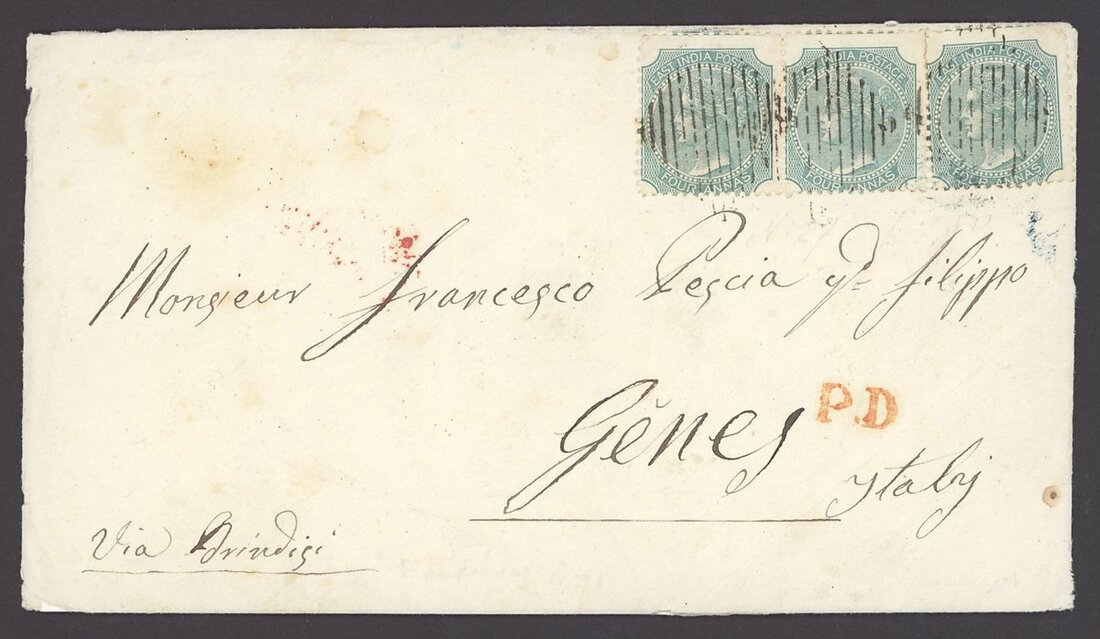 EAST INDIA POSTAGE
FOUR ANNAS
EAST INDIA POSTAGE
FOUR ANNAS
EAST INDIA POSTAGE
FOUR ANNAS
Monsieur Francesco Pescia qd. Filippo
Gênes
P.D
Italy
Via Brindisi